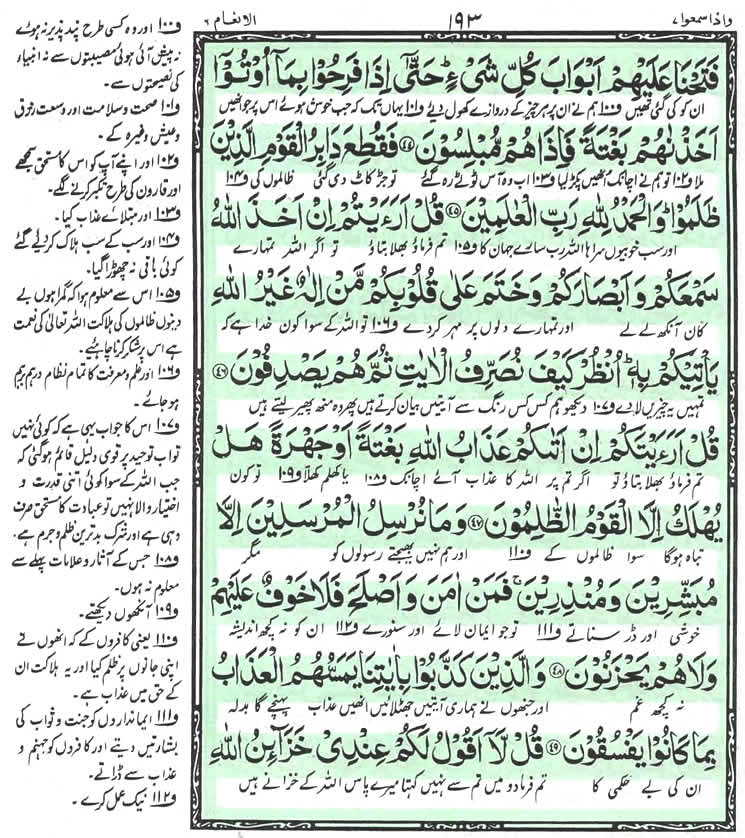 واذا سمعوا ٧
١٩٣
الانعام ٦
فَتَحْنَا عَلَيْهِمْ اَبْوَابَ كُلِّ شَيْءٍ حَتّٰۤى اِذَا فَرِحُوْا بِمَاۤ اُوْتُوْۤا
ان کو کی گئی تھیں ف۱۰۰ ہم نے ان پر ہر چیز کے دروازے کھول دیئے ف۱۰۱ یہاں تک کہ جب خوش ہوئے اس پر جو انھیں
اَخَذْنٰهُمْ بَغْتَةً فَاِذَا هُمْ مُّبْلِسُوْنَ ﴿۴۴﴾ فَقُطِعَ دَابِرُ الْقَوْمِ الَّذِيْنَ
ملا ف۱۰۲ تو ہم نے اچانک انھیں پکڑ لیا ف۱۰۳ اب وہ آس ٹوٹے رہ گئے تو جڑ کاٹ دی گئی ظالموں کی ف۱۰۴
ظَلَمُوْا ؕ وَالْحَمْدُ لِلّٰهِ رَبِّ الْعٰلَمِيْنَ ﴿۴۵﴾ قُلْ اَرَءَيْتُمْ اِنْ اَخَذَ اللّٰهُ
اور سب خوبیوں سراہا اللہ رب سارے جہان کا ف۱۰۵ تم فرماؤ بھلا بتاؤ تو اگر اللہ تمہارے
سَمْعَكُمْ وَاَبْصَارَكُمْ وَخَتَمَ عَلٰى قُلُوْبِكُمْ مَّنْ اِلٰهٌ غَيْرُ اللّٰهِ
کان آنکھ لے لے اور تمہارے دلوں پر مہر کر دے ف۱۰۶ تو اللہ کے سوا کون خدا ہے کہ
يَاْتِيْكُمْ بِهٖ ؕ اُنْظُرْ كَيْفَ نُصَرِّفُ الْاٰيٰتِ ثُمَّ هُمْ يَصْدِفُوْنَ ﴿۴۶﴾
تمہیں یہ چیزیں لا دے ف۱۰۷ دیکھو ہم کس کس رنگ سے آیتیں بیان کرتے ہیں پھر وہ منھ پھیر لیتے ہیں
قُلْ اَرَءَيْتَكُمْ اِنْ اَتٰىكُمْ عَذَابُ اللّٰهِ بَغْتَةً اَوْ جَهْرَةً هَلْ
تم فرماؤ بھلا بتاؤ تو اگر تم پر اللہ کا عذاب آئے اچانک ف۱۰۸ یا کھلم کھلا ف۱۰۹ تو کون
يُهْلَكُ اِلَّا الْقَوْمُ الظّٰلِمُوْنَ ﴿۴۷﴾ وَمَا نُرْسِلُ الْمُرْسَلِيْنَ اِلَّا
تباہ ہوگا سوا ظالموں کے ف۱۱۰ اور ہم نہیں بھیجتے رسولوں کو مگر
مُبَشِّرِيْنَ وَمُنْذِرِيْنَ ۚ فَمَنْ اٰمَنَ وَاَصْلَحَ فَلَا خَوْفٌ عَلَيْهِمْ
خوشی اور ڈر سناتے ف۱۱۱ تو جو ایمان لائے اور سنورے ف۱۱۲ ان کو نہ کچھ اندیشہ
وَلَا هُمْ يَحْزَنُوْنَ ﴿۴۸﴾ وَالَّذِيْنَ كَذَّبُوْا بِاٰيٰتِنَا يَمَسُّهُمُ الْعَذَابُ
نہ کچھ غم اور جنھوں نے ہماری آیتیں جھٹلائیں انھیں عذاب پہنچے گا بدلہ
بِمَا كَانُوْا يَفْسُقُوْنَ ﴿۴۹﴾ قُلْ لَّاۤ اَقُوْلُ لَكُمْ عِنْدِيْ خَزَآئِنُ اللّٰهِ
ان کی بے حکمی کا تم فرمادو میں تم سے نہیں کہتا میرے پاس اللہ کے خزانے ہیں
ف۱۰۰ اور وہ کسی طرح پند پذیر نہ ہوئے
نہ پیش آئی ہوئی مصیبتوں سے نہ انبیاء
کی نصیحتوں سے۔
ف۱۰۱ صحت و سلامت اور وسعت رزق
و عیش وغیرہ کے۔
ف۱۰۲ اور اپنے آپ کو اس کا مستحق سمجھے
اور قارون کی طرح تکبر کرنے لگے۔
ف۱۰۳ اور مبتلائے عذاب کیا۔
ف۱۰۴ اور سب کے سب ہلاک کر دیئے گئے
کوئی باقی نہ چھوڑا گیا۔
ف۱۰۵ اس سے معلوم ہوا کہ گمراہوں بے
دینوں ظالموں کی ہلاکت اللہ تعالیٰ کی نعمت
ہے اس پر شکر کرنا چاہیے۔
ف۱۰۶ اور علم و معرفت کا تمام نظام درہم برہم
ہو جائے۔
ف۱۰۷ اس کا جواب یہی ہے کہ کوئی نہیں
تو اب توحید پر قوی دلیل قائم ہوگئی کہ
جب اللہ کے سوا کوئی اتنی قدرت و
اختیار والا نہیں تو عبادت کا مستحق صرف
وہی ہے اور شرک بدترین ظلم و جرم ہے۔
ف۱۰۸ جس کے آثار و علامات پہلے سے
معلوم نہ ہوں۔
ف۱۰۹ آنکھوں دیکھتے۔
ف۱۱۰ یعنی کافروں کے کہ انھوں نے
اپنی جانوں پر ظلم کیا اور یہ ہلاکت ان
کے حق میں عذاب ہے۔
ف۱۱۱ ایمانداروں کو جنت و ثواب کی
بشارتیں دیتے اور کافروں کو جہنم و
عذاب سے ڈراتے۔
ف۱۱۲ نیک عمل کرے۔